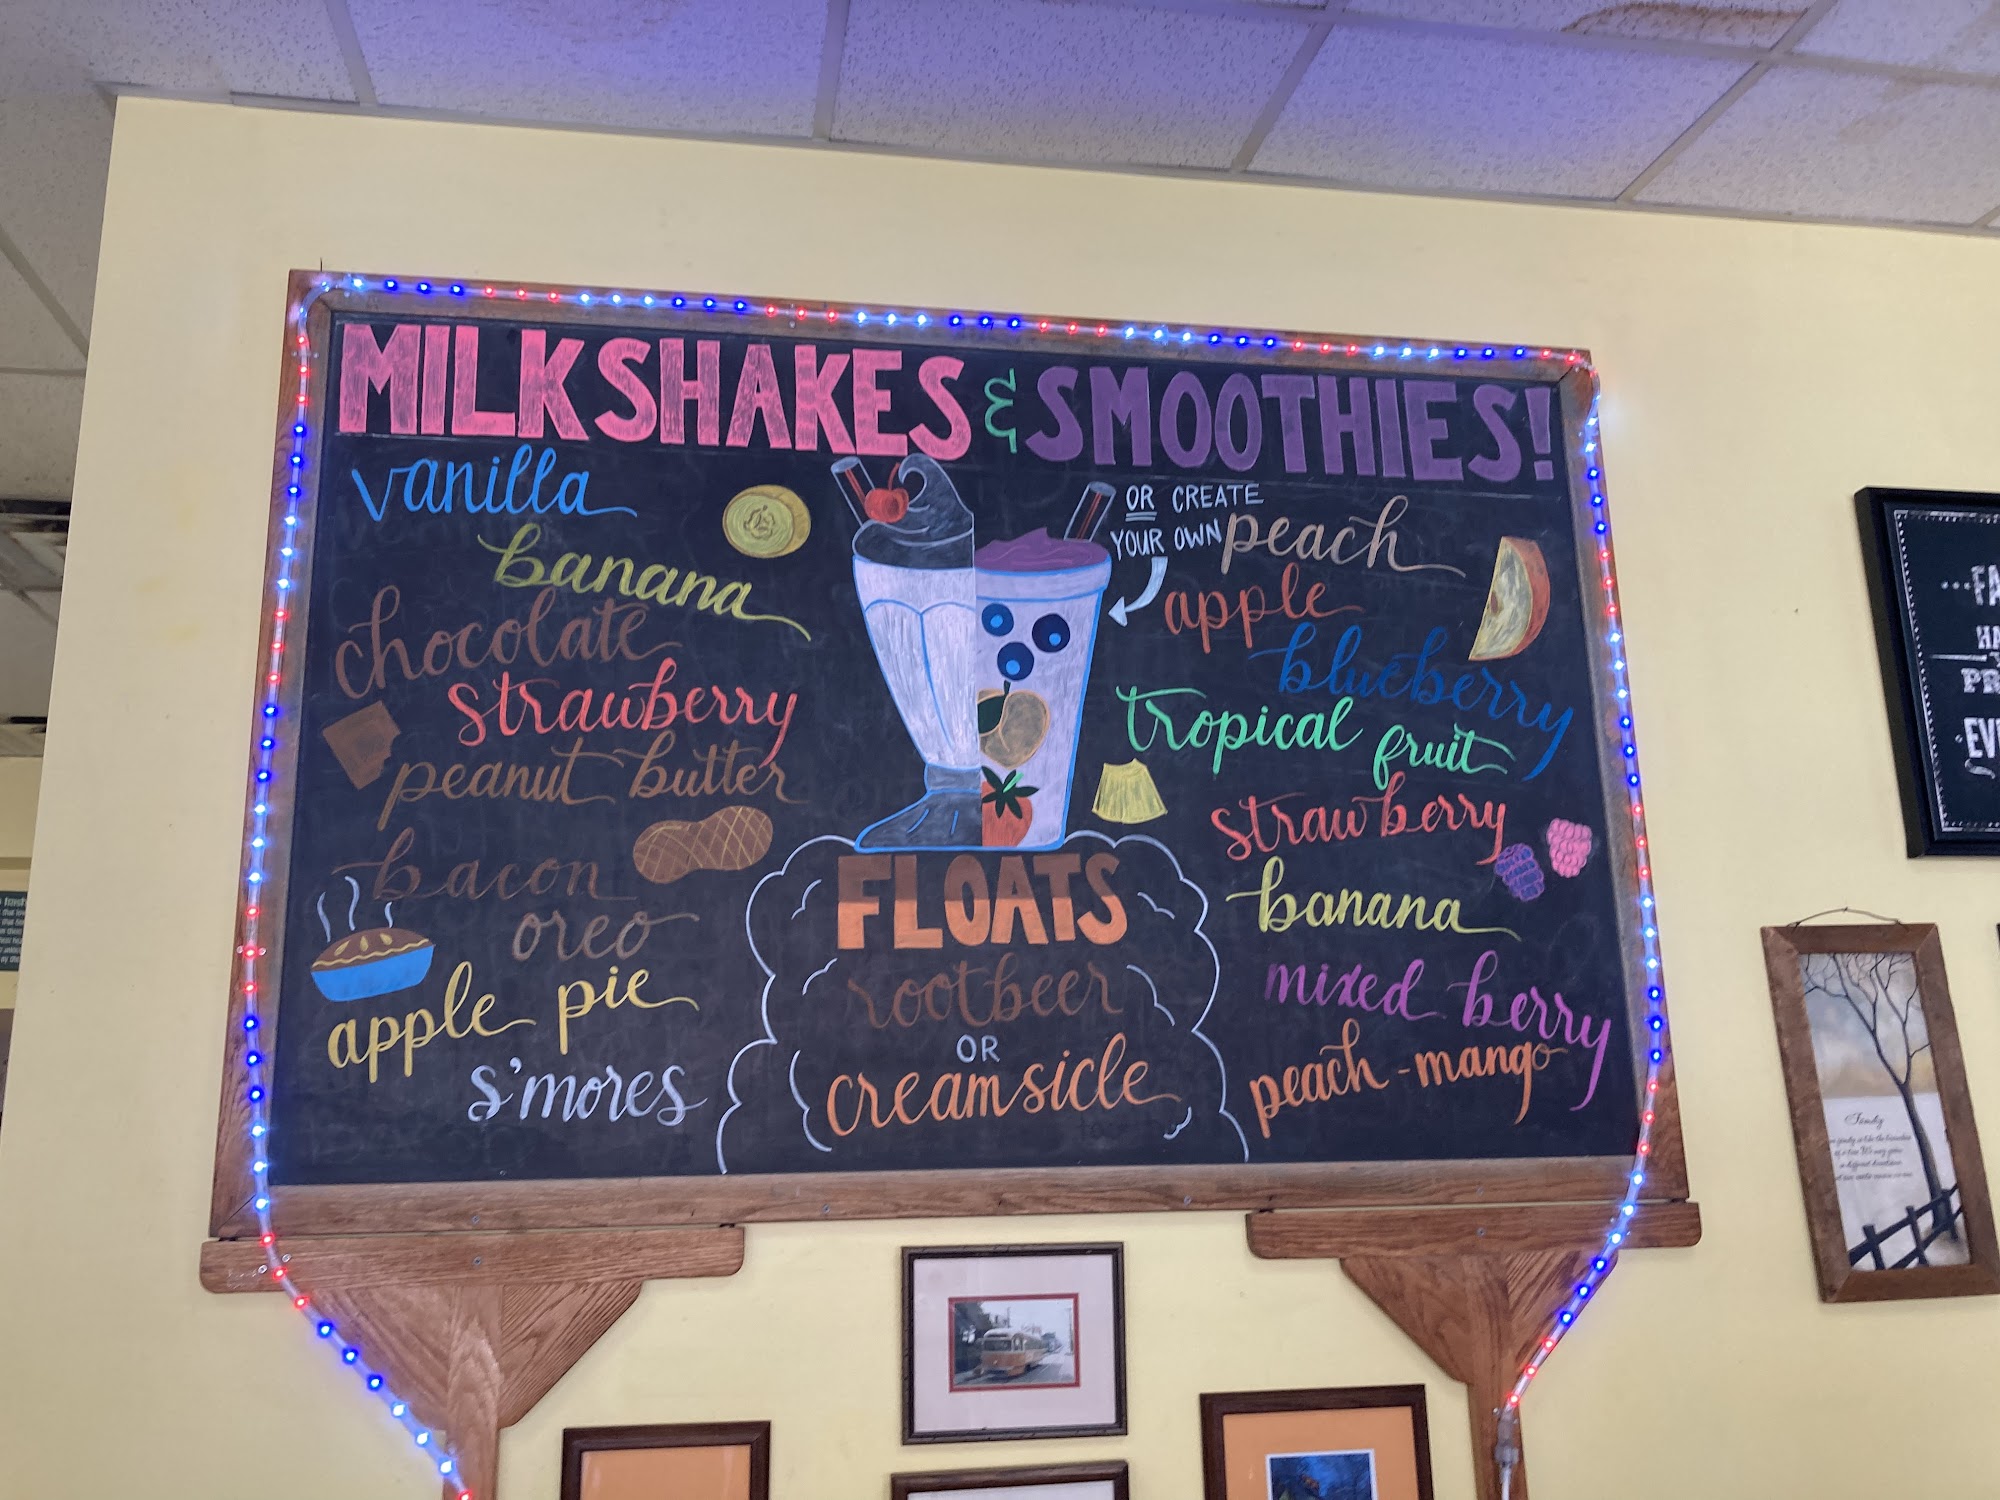 MILKSHAKES & SMOOTHIES!
vanilla
banana
chocolate
strawberry
peanut butter
bacon
oreo
apple pie
s'mores
OR CREATE
YOUR OWN
peach
apple
blueberry
tropical fruit
strawberry
banana
mixed berry
peach-mango
FLOATS
rootbeer
OR
creamsicle
FA
HA
PR
EV
Family